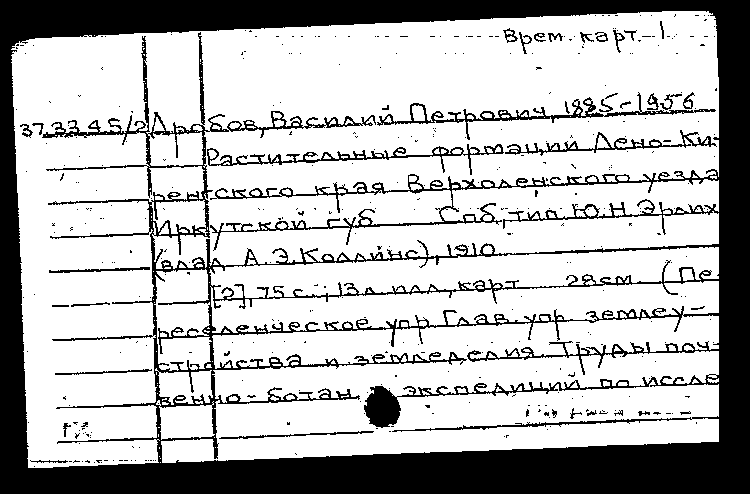 Врем. карт. 1
37.33.4.5/2 Дробов, Василий Петрович, 1885-1956
Растительные формации Лено-Ки-
ренгского края Верхоленского уезда
Иркутской губ Спб, тип Ю.Н.Эрлих
(влад А.Э.Коллинс), 1910
[2], 75 с.; 13 л илл., карт 28см (Пе-
реселенческое упр Глав. упр. землеу-
стройства и земледелия Труды поч-
венно-ботан. экспедиций по иссле
ГК